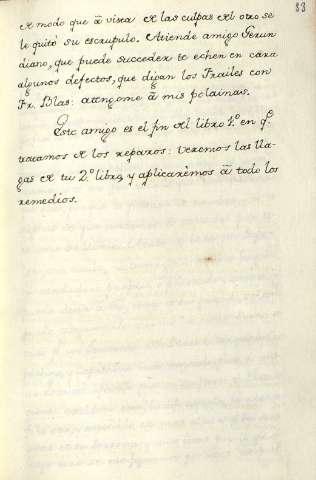 83
de modo que â vista de las culpas del otro se
le quitó su escrupulo. Atiende amigo Gerun
diano, que puede succeder te echen en cara
algunos defectos, que digan los Frailes con
Fr. Blas: atengome â mis polainas.
Este amigo es el fin del libro 1.º en q.º
tratamos de los reparos: veremos las lla-
gas de tu 2.º libro, y aplicarèmos â todo los
remedios.